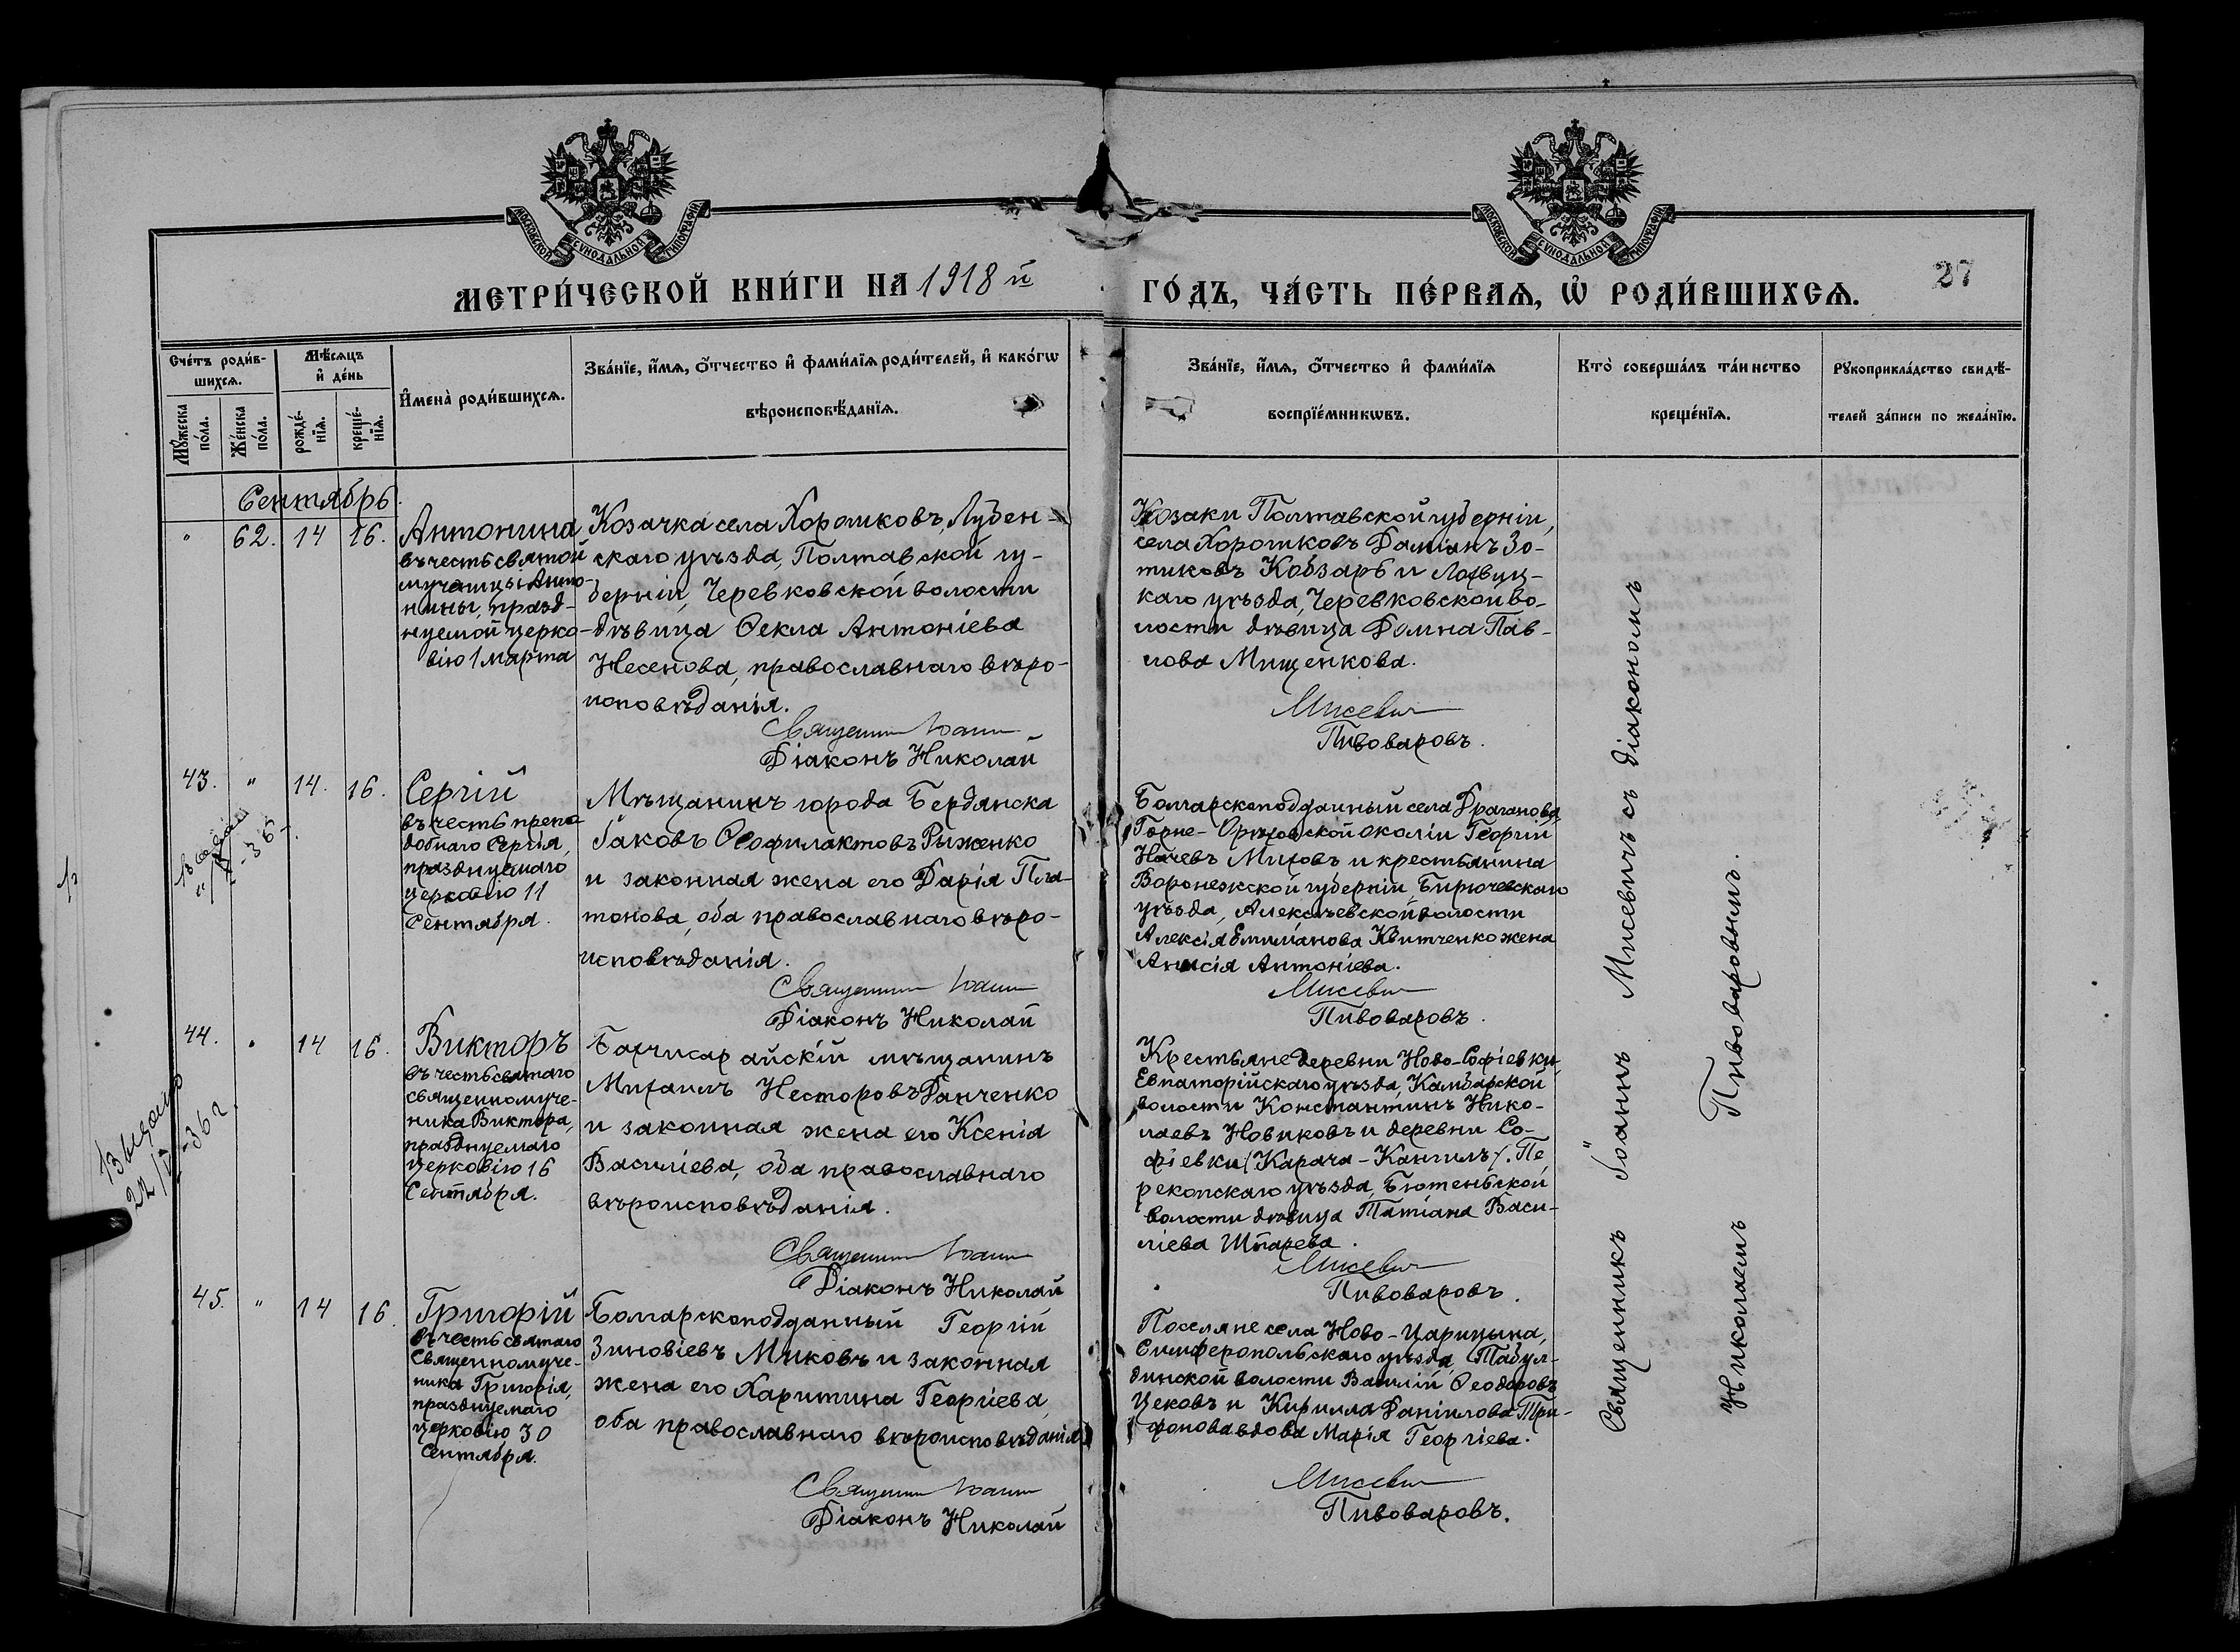 МОСКОВСКОЙ СѴНОДАЛЬНОЙ ТИПОГРАФІИ
МОСКОВСКОЙ СѴНОДАЛЬНОЙ ТИПОГРАФІИ
МЕТРИ́ЧЕСКОЙ КНИ́ГИ НА 1918 й
ГО́ДЪ, ЧА́СТЬ ПЕ́РВАѦ, Ѡ҆ РОДИ́ВШИХСѦ.
27
Сче́тъ роди́в-
шихсѧ.
Мѣ́сѧцъ
и҆ де́нь
Мꙋ́жеска
по́ла.
Же́нска
по́ла.
рожде́-
нїѧ.
креще́-
нїѧ.
И҆мена̀ роди́вшихсѧ.
Зва́нїе, и҆́мѧ, ѻ҆́тчество и҆ фами́лїѧ роди́телей, и҆ како́гѡ
вѣроисповѣ́данїѧ.
Зва́нїе, и҆́мѧ, ѻ҆́тчество и҆ фами́лїѧ
воспрїе́мникѡвъ.
Кто̀ соверша́лъ та́инство
креще́нїѧ.
Рꙋкоприкла́дство свидѣ́-
телей за́писи по жела́нїю.
Сентябрь.
" 62. 14 16.
Антонина
въ честь святой
мученицы Анто-
нины, празд-
нуемой церко-
вію 1 марта
Козачка села Хорошковъ, Лубен-
скаго уѣзда, Полтавской гу-
берніи, Черевковской волости
дѣвица Ѳекла Антоніева
Несенова, православнаго вѣро-
исповѣданія.
Священникъ Іоаннъ
Діаконъ Николай
Козаки Полтавской губерніи,
села Хорошковъ Даміанъ Зо-
тиковъ Кобзарь и Лохвиц-
каго уѣзда, Черевковской во-
лости дѣвица Домна Пав-
лова Мищенкова.
Мисевичъ
Пивоваровъ.
43. " 14. 16.
Сергій
въ честь препо
добнаго Сергія,
празднуемаго
церковію 11
Сентября.
Мѣщанинъ города Бердянска
Іаковъ Ѳеофилактовъ Рыженко
и законная жена его Дарія Пла-
тонова, оба православнаго вѣро-
исповѣданія.
Священникъ Іоаннъ
Діаконъ Николай
Болгарскоподданный села Драганова,
Горне-Орѣховской околіи Георгій
Начевъ Митовъ и крестьянина
Воронежской губерніи Бирючевскаго
уѣзда, Алексѣевской волости
Алексія Емиліанова Квитченко жена
Анисія Антоніева.
Мисевичъ
Пивоваровъ.
44. " 14 16.
Викторъ
въ честь святаго
священномуче-
ника Виктора,
празднуемаго
церковію 16
Сентября.
Бахчисарайскій мѣщанинъ
Михаилъ Несторовъ Данченко
и законная жена его Ксенія
Василіева, оба православнаго
вѣроисповѣданія.
Священникъ Іоаннъ
Діаконъ Николай
Крестьяне деревни Ново-Софіевки,
Евпаторійскаго уѣзда, Камбарской
волости Константинъ Нико-
лаевъ Новиковъ и деревни Со-
фіевки /Карача-Кангилъ/. Пе
рекопскаго уѣзда, Бютеньской
волости дѣвица Татіана Васи-
ліева Шпарева.
Мисевичъ
Пивоваровъ.
45. " 14 16.
Григорій
въ честь святаго
Священномуче-
ника Григорія,
празднуемаго
церковію 30
Сентября.
Болгарскоподданный Георгій
Зиновіевъ Миковъ и законная
жена его Харитина Георгіева,
оба православнаго вѣроисповѣданія
Священникъ Іоаннъ
Діаконъ Николай
Поселяне села Ново-Царицына,
Симферопольскаго уѣзда, Табул-
динской волости Василій Ѳеодоровъ
Цековъ и Кирилла Даніилова Три-
фонова вдова Марія Георгіева.
Мисевичъ
Пивоваровъ.
Священникъ Іоаннъ Мисевичъ съ діакономъ
Николаемъ Пивоваровымъ.